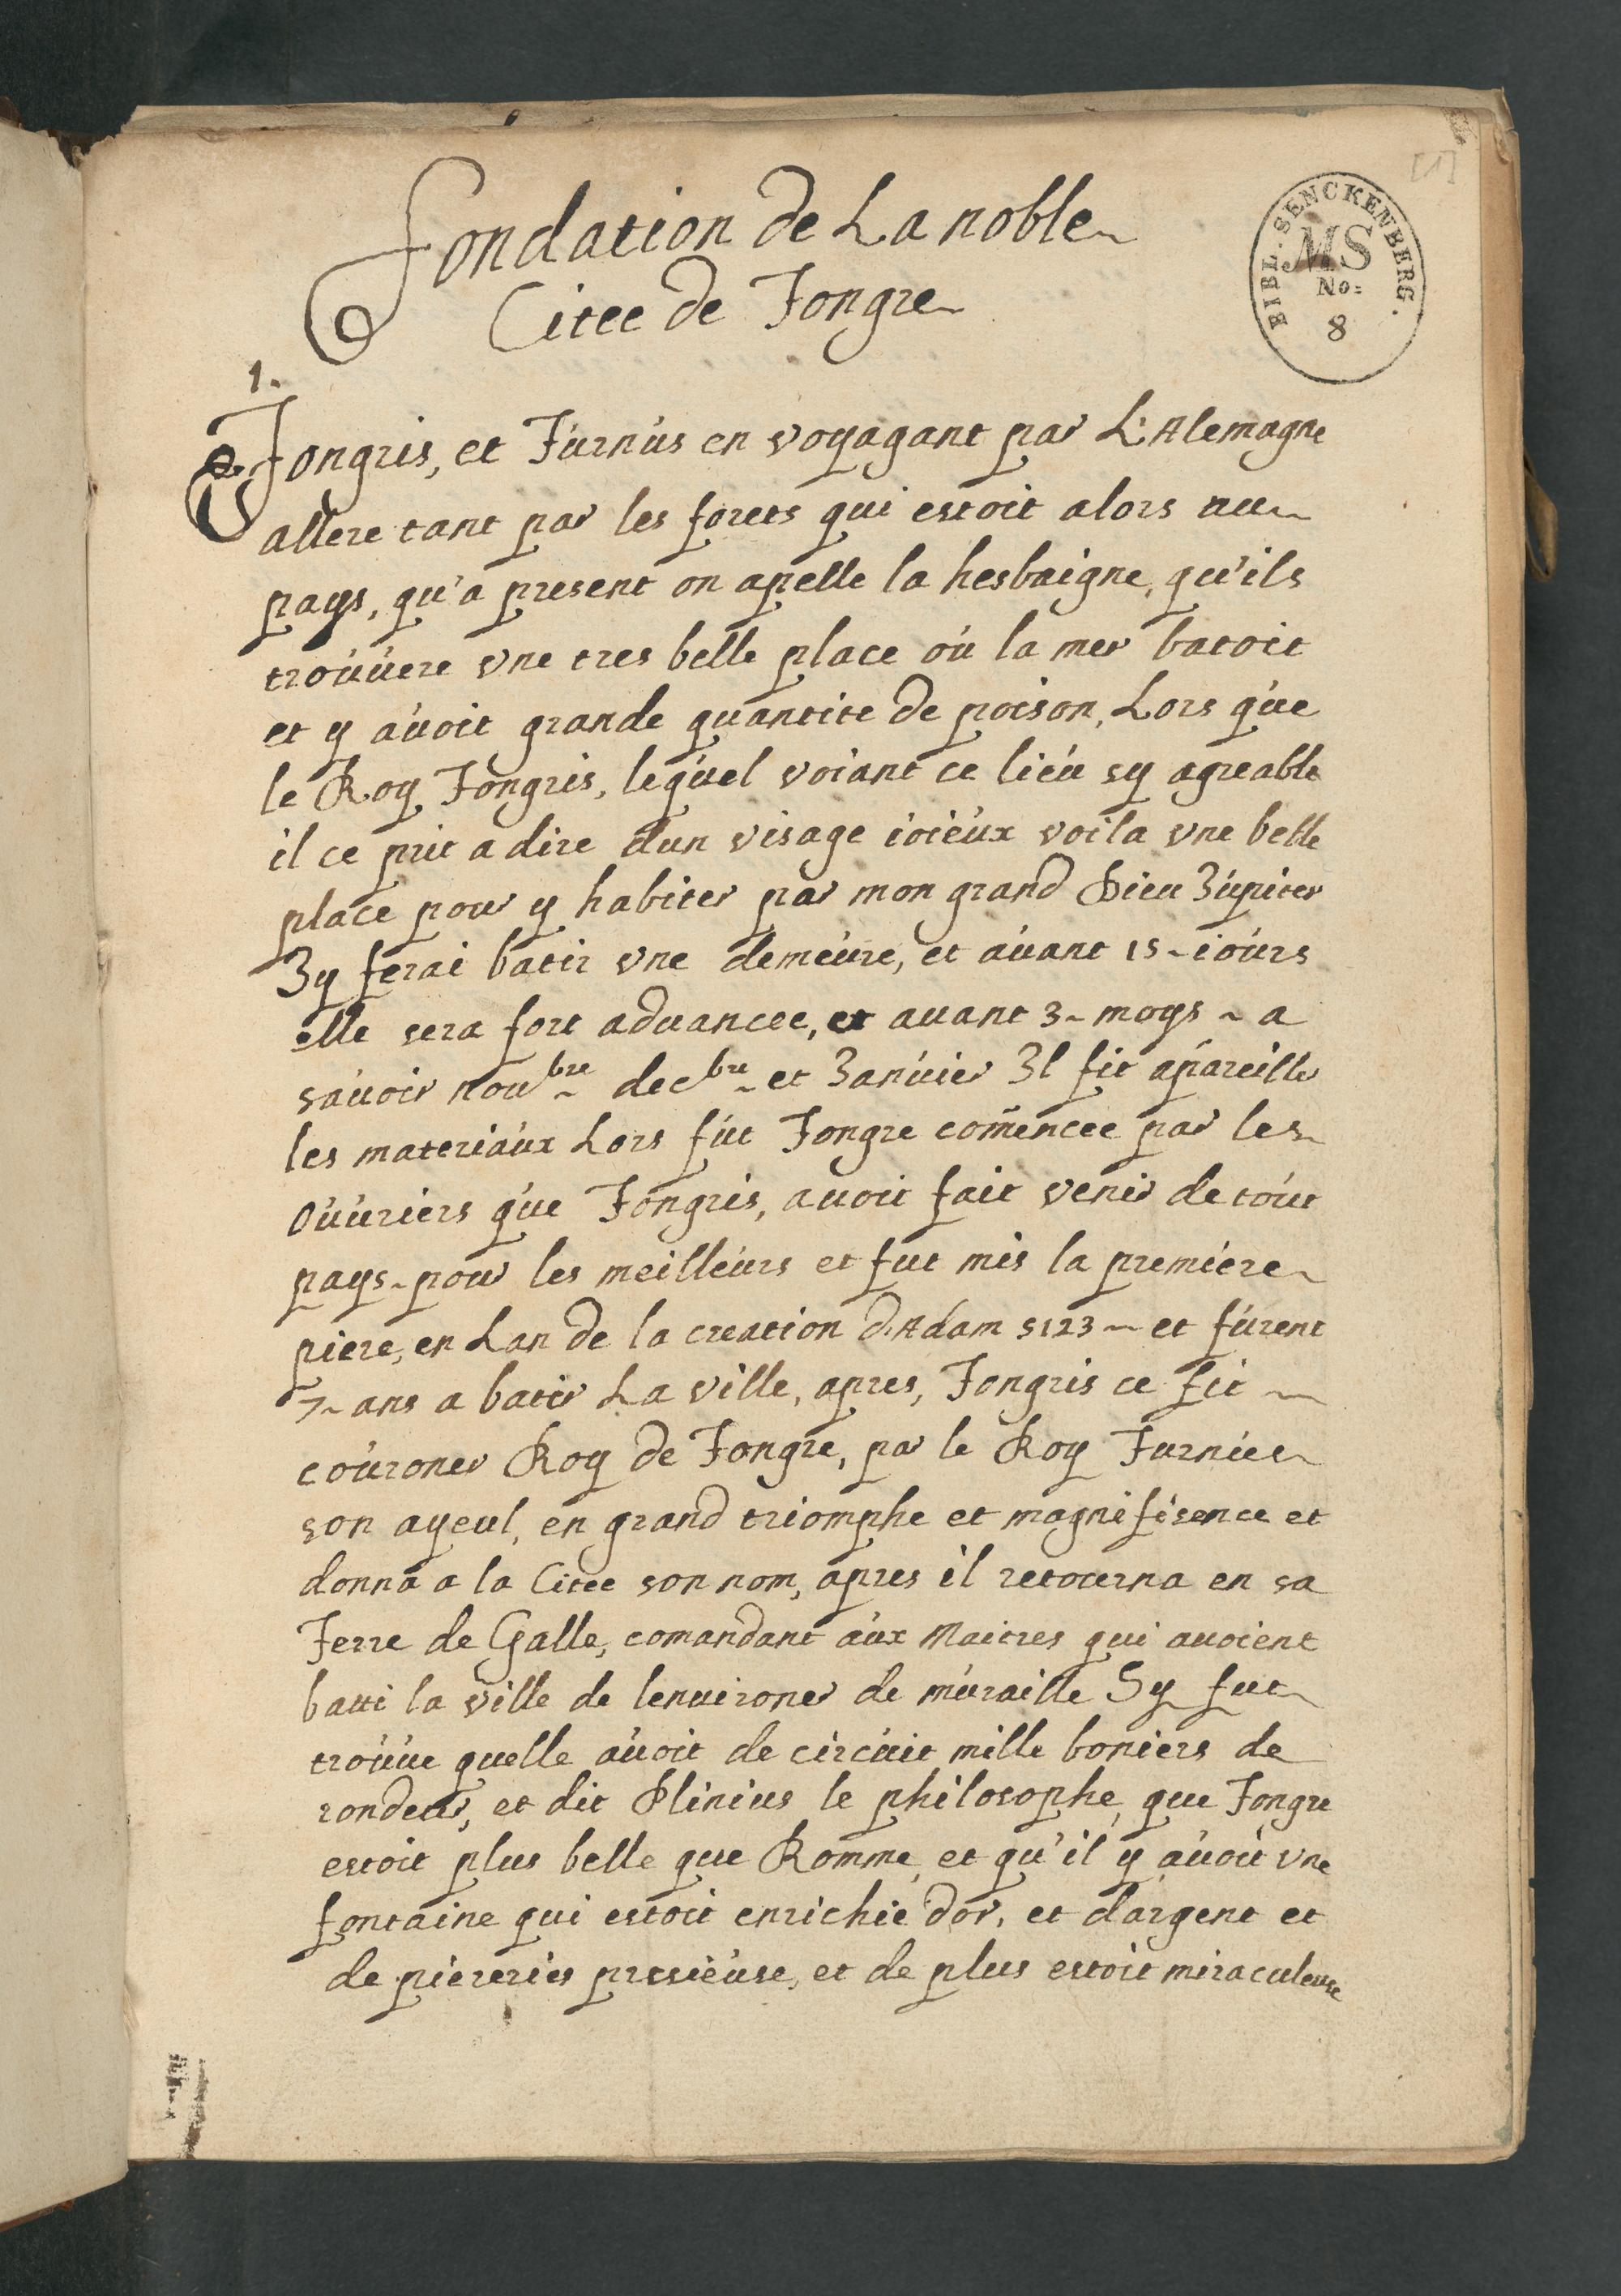 fondation de La noble
Citee de Tongre
[1]
BIBL. SENCKENBERG.
MS
No:
8
1.
Tongris, et Turnus en voyagant par L'Alemagne
allere tant par les forets qui estoit alors au
pays, qu'a present on apelle la hesbaigne, qu'ils
trouuere vne tres belle place où la mer batoit
et y auoit grande quantite de poison, Lors que
le Roy Tongris, lequel voiant ce lieu sy agreable
il ce prit a dire dun visage ioieux voila vne belle
place pour y habiter par mon grand Dieu Jupiter
Jy ferai batir vne demeure, et auant 15 iours
elle sera fort aduancee, et auant 3 moys a
sauoir nou^bre dec^bre et Januier Jl fit apareiller
les materiaux Lors fut Tongre comēncee par les
ouuriers que Tongris, auoit fait venir de tout
pays pour les meilleurs et fut mis la premiere
piere, en Lan de la creation d'Adam 5123 et furent
7 ans a batir La ville, apres, Tongris ce fit
couroner Roy de Tongre, par le Roy Turnus
son ayeul, en grand triomphe et magnifisence et
donna a la Citee son nom, apres il retourna en sa
Terre de Galle, comandant aux Maitres qui auoient
batti la ville de lenuironer de muraille Sy fut
trouue quelle auoit de circuit mille boniers de
rondeur, et dit Plinius le philosophe, que Tongre
estoit plus belle que Romme, et qu'il y auoit vne
fontaine qui estoit enrichie dor, et dargent et
de piereries presieuse, et de plus estoit miraculeuse